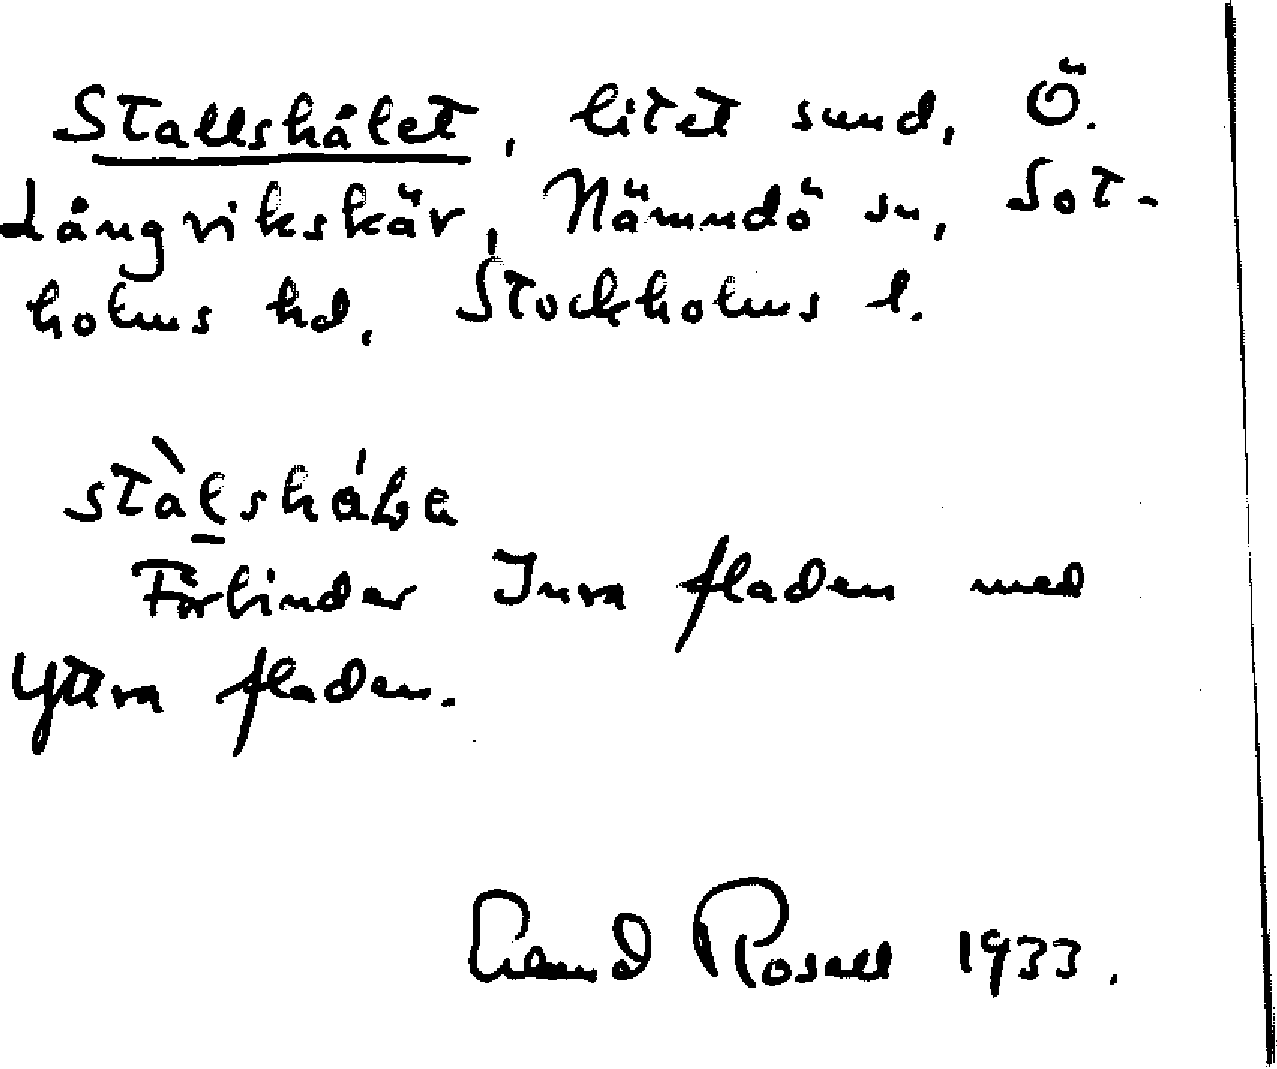 Stallshålet, litet sund, Ö.
Långvikskär, Nämndö sn, Sot-
holms hd, Stockholms l.
Förbinder Inra fladen med
Yttra fladen.
Rosell 1933.